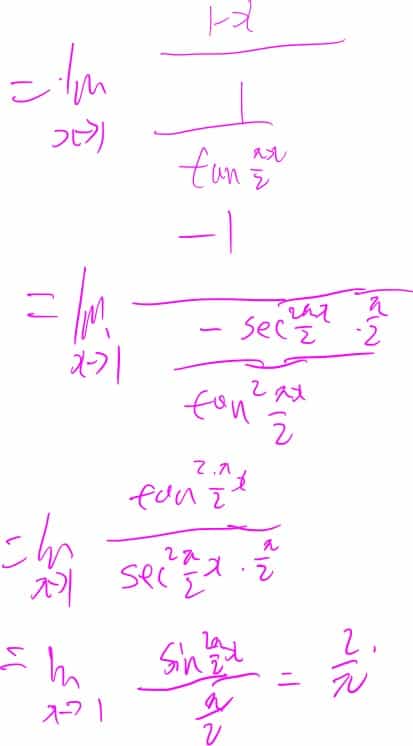 = lim_{x→1} \frac{1-x}{\frac{1}{\tan \frac{πx}{2}}}
= lim_{x→1} \frac{-1}{\frac{-\sec^2 \frac{πx}{2} · \frac{π}{2}}{\tan^2 \frac{πx}{2}}}
= lim_{x→1} \frac{\tan^2 \frac{π}{2} x}{\sec^2 \frac{π}{2} x · \frac{π}{2}}
= lim_{x→1} \frac{\sin^2 \frac{π}{2} x}{\frac{π}{2}} = \frac{2}{π}.